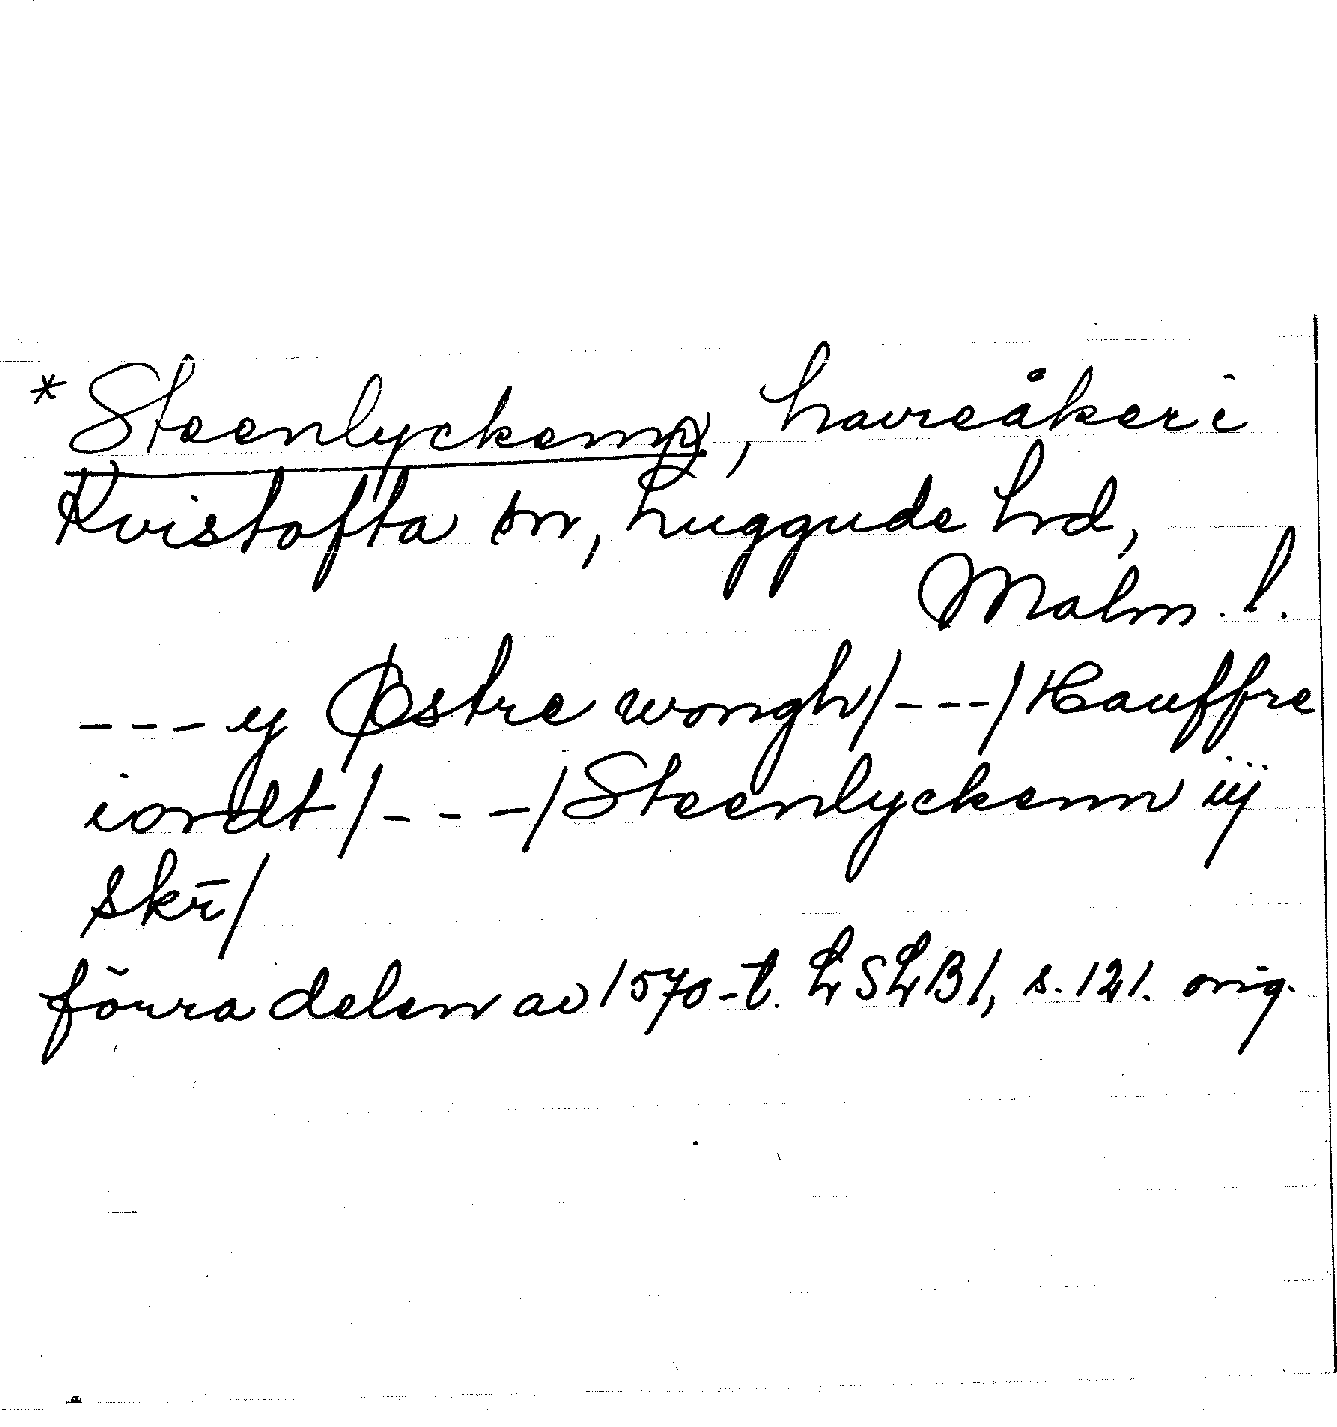 * Steenlyckenn, havreåker i
Kvistofta sn, Luggude hrd,
Malm. l.
--- y Østre wongh/---/Hauffre
iordt/---/Steenlyckenn iij
skr̄/
förra delen av 1570-t. LSLB1, s. 121. orig.